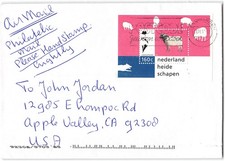 Air Mail
Philatelic
Mail
Please Handstamp
Lightly
160c
nederland
heide
schapen
To John Jordan
12985 E Lompoc Rd
Apple Valley, CA 92308
USA